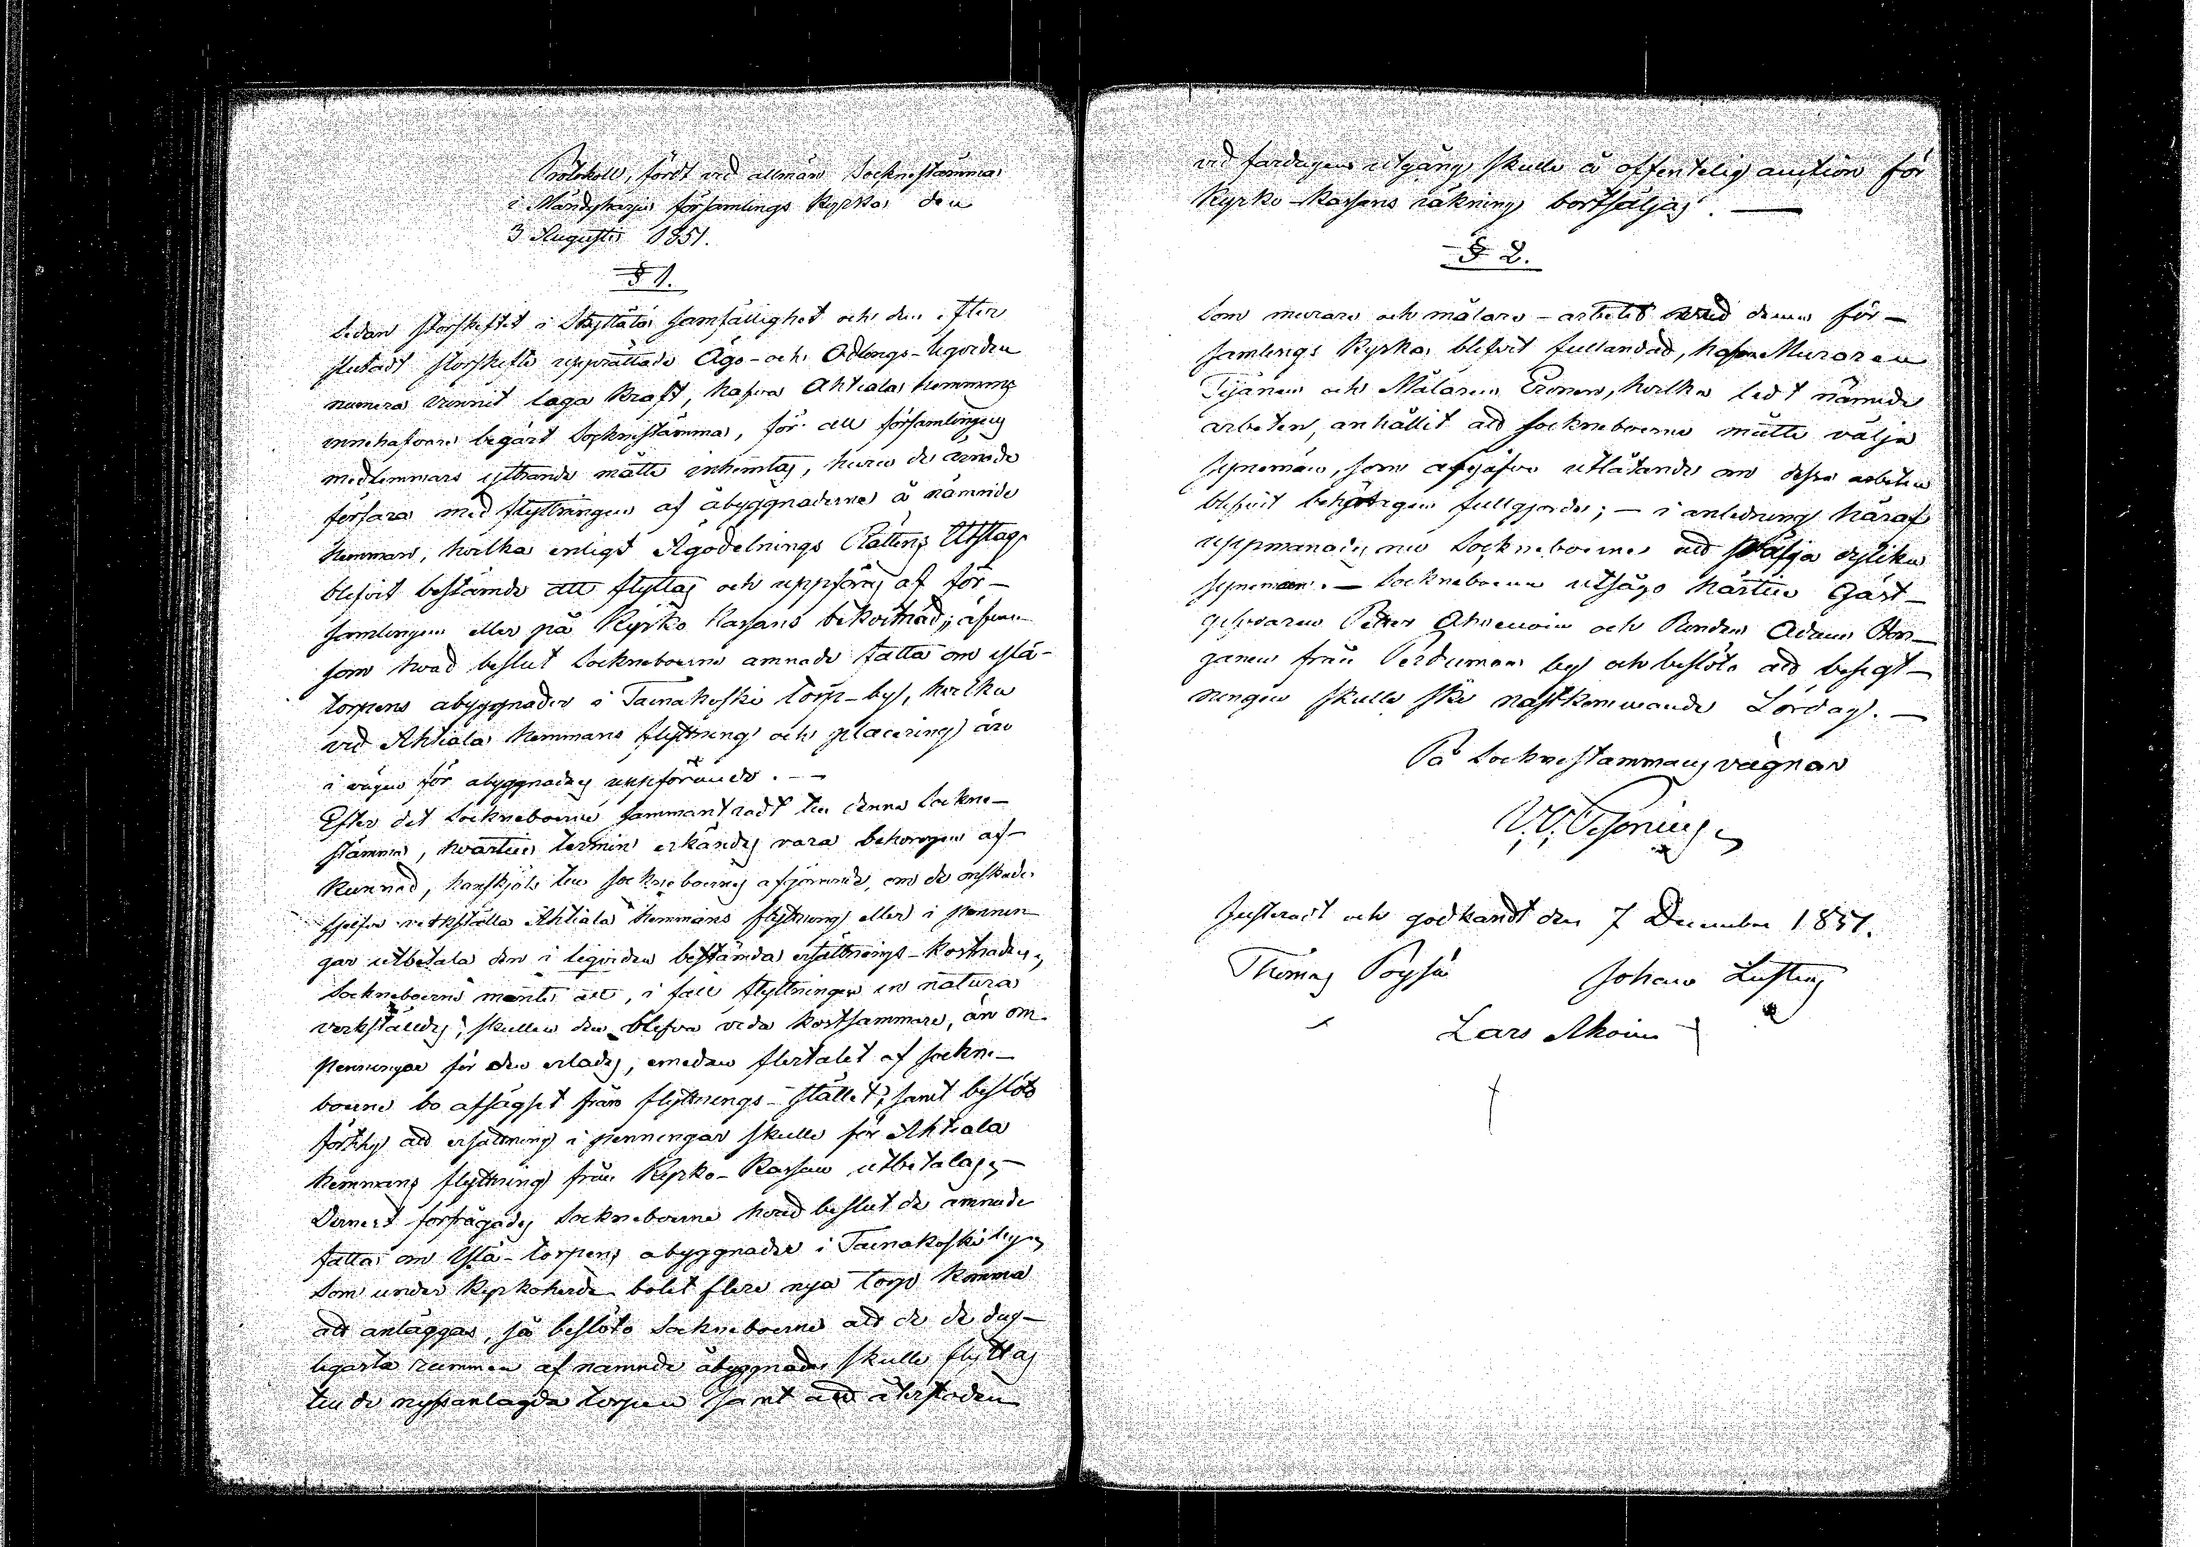 Protokoll, fördt vid allmän Socknestämma
i Mändyharju församlings Kyrka den
3 Augusti 1851.
§ 1.
Sedan storskiftet i samfällighet och den efter
slutadt storskifte upprättade Ägo- och Odlings-Legorden
numera vunnit laga kraft, hafva Ahtiala hemmans
innehafvare begärt Socknestämma, för att församlingens
medlemmars yttrande måtte inhemtas, huru de ämnade
förfara med flyttningen af åbyggnaderne å nämnde
hemman, hvilka enligt Ägodelnings Rättens Utslag
blifvit bestämde att flyttas och uppföras af för-
samlingen eller på Kyrko Kassans bekostnad; äfven
som hvad beslut Socknеboerne ämnade fatta om ystä-
torpens åbyggnader i Tainakoski torp-by, hvilka
vid Ahtiala hemmans flyttning och placering äro
i vägen för åbyggnadens uppförande. —
Efter det Sockneboerne sammanträdt till denna Sockne-
stämma, hvartill termin erkändes vara behörigen af-
kunnad, hänskjöts till sockneboernes afgörande, om de önskade
sjelfva verkställa Ahtiala hemmans flyttning eller i pennin-
gar utbetala den i legorden bestämda ersättnings-kostnaden,
Sockneboerne mente att, i fall flyttningen in natura
verkställdes, skulle den blefva vida kostsammare, än om
penningar för den erlades, emedan flertalet af sockne-
boerne bo afsägset från flyttnings-stället; samt beslöto
förthy att ersättning i penningar skulle för Ahtiala
hemmans flyttning från Kyrko-Kassan utbetalas; —
Dernest förfrågades Sockneboerne hvad beslut de ämnade
fatta om Ystä-torpens åbyggnader i Tainakoski by,
Som under Kyrkoherde bolet flere nya torp komma
att anläggas, så beslöto Sockneboerne att de de dug-
ligaste rummen af nämnde åbyggnader skulle flyttas
till de nyssanlagda torpen samt att återstoden
vid fardagens utgång skulle å offentelig auction för
Kyrko-Kassans räkning bortsäljas. —
§ 2.
Som murare och målare-arbetet vid denna för-
samlings Kyrka blifvit fullandad, hafva Muraren
och Målaren Eronen, hvilka ledt nämnde
arbeten, anhållit att sockneboerne måtte välja
synemän, som afgåfve utlåtande om dessa arbeten
blifvit behörigen fullgjorde; — i anledning häraf
uppmanades nu Sockneboerne att välja dylika
synemän. — Sockneboerne utsågo härtill Gäst-
gifvaren Petter och Bonden Adam
från by och beslöto att besigt-
ningen skulle ske nästkommande Lördag. —
På Sockne stämmans vägnar
Justeradt och godkändt den 7 December 1851.
Thomas Pöyhä Johan Lusting
Lars Ahoin